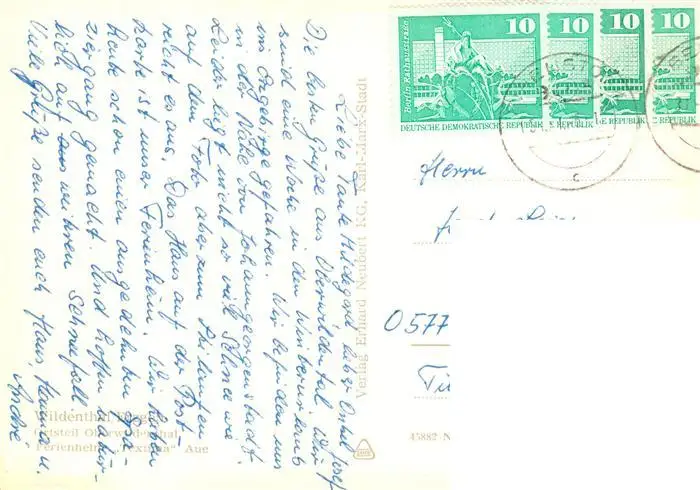 Liebe Tante Hildegard, lieber Onkel Josef
Die besten Grüße aus Oberwildental. Wir
sind eine Woche in den Winterurlaub
im Erzgebirge gefahren. Wir befinden uns
in der Nähe von Johanngeorgenstadt.
Leider liegt nicht so viel Schnee wie
auf dem Foto aber zum Skilaufen
reicht es aus. Das Haus auf der Post-
karte ist unser Ferienheim. Wir haben
heute schon einen ausgedehnten Spa-
ziergang gemacht. Und hoffen natür-
lich auf weiteren Schneefall.
Viele Grüße senden euch Hans, Hanna u.
André
Wildenthal
Ortsteil Oberwildenthal
Ferienheim "Texima" Aue
Verlag Erhard Neubert KG, Karl-Marx-Stadt
Berlin-Rathausstraße
10
10
10
10
DEUTSCHE DEMOKRATISCHE REPUBLIK
E REPUBLIK
E REPUBLIK
REPUBLIK
c
Herrn
0577
45882 N